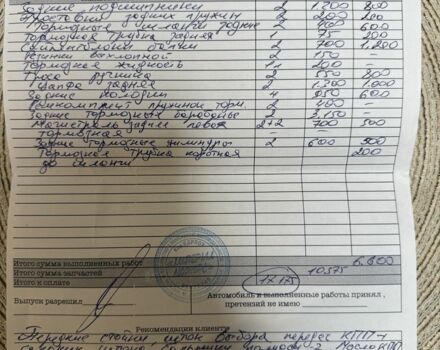 Задние подшипники 2 1.200 800
Проставки задних пружин 2 200 200
Тормозные шланги задние 2 400 600
Тормозная трубка задняя 1 75 200
Сайлентблоки балки 2 700 1.200
Резинки выхлопной 2 150 —
Тормозная жидкость 1 200 —
Троса ручника 2 550 800
задняя 2 1.300 1.000
Задние колодки 4 650 600
Ремкомплект пружинок торм. 2 400 —
Задние тормозные барабаны 2 3.150 —
Магистраль задняя левая 2+2 700 500
тормозная — — —
Задние тормозные цилиндры 2 600 500
Тормозная трубка короткая 200
до
Итого сумма выполненных работ 6.600
Итого сумма запчастей 10575
Итого к оплате 17175
Выпуск разрешил
Автомобиль и выполненные работы принял ,
претензий не имею
Рекомендации клиенту
Передние стойки, шток выбора передач КПП-